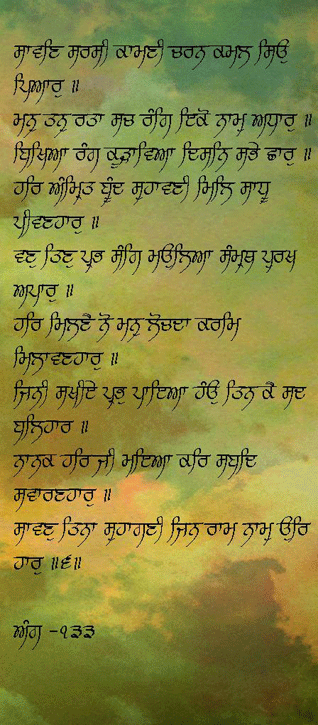 ਸਾਵਣਿ ਸਰਸੀ ਕਾਮਣੀ ਚਰਨ ਕਮਲ ਸਿਉ
ਪਿਆਰੁ ॥
ਮਨੁ ਤਨੁ ਰਤਾ ਸਚ ਰੰਗਿ ਇਕੋ ਨਾਮੁ ਅਧਾਰੁ ॥
ਬਿਖਿਆ ਰੰਗ ਕੂੜਾਵਿਆ ਦਿਸਨਿ ਸਭੇ ਛਾਰੁ ॥
ਹਰਿ ਅੰਮ੍ਰਿਤ ਬੂੰਦ ਸੁਹਾਵਣੀ ਮਿਲਿ ਸਾਧੂ
ਪੀਵਣਹਾਰੁ ॥
ਵਣੁ ਤਿਣੁ ਪ੍ਰਭ ਸੰਗਿ ਮਉਲਿਆ ਸੰਮ੍ਰਥ ਪੁਰਖ
ਅਪਾਰੁ ॥
ਹਰਿ ਮਿਲਣੈ ਨੋ ਮਨੁ ਲੋਚਦਾ ਕਰਮਿ
ਮਿਲਾਵਣਹਾਰੁ ॥
ਜਿਨੀ ਸਖੀਏ ਪ੍ਰਭੁ ਪਾਇਆ ਹੰਉ ਤਿਨ ਕੈ ਸਦ
ਬਲਿਹਾਰ ॥
ਨਾਨਕ ਹਰਿ ਜੀ ਮਇਆ ਕਰਿ ਸਬਦਿ
ਸਵਾਰਣਹਾਰੁ ॥
ਸਾਵਣੁ ਤਿਨਾ ਸੁਹਾਗਣੀ ਜਿਨ ਰਾਮ ਨਾਮੁ ਉਰਿ
ਹਾਰੁ ॥੬॥
ਅੰਗ -੧੩੩